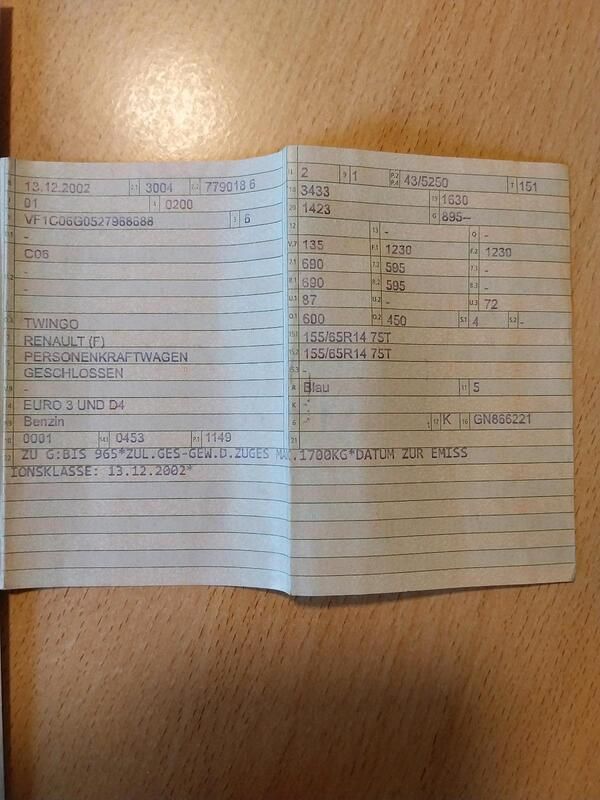 13.12.2002 2.1 3004 2.2 779018 6
01 4 0200
VF1C06G0527968688 3 6
-
C06
-
-
TWINGO
RENAULT (F)
PERSONENKRAFTWAGEN
GESCHLOSSEN
-
EURO 3 UND D4
Benzin
0001 14.1 0453 P.1 1149
2 9 1 P.2 P.4 43/5250 T 151
18 3433 19 1630
20 1423 G 895--
12 - 13 - Q -
V.7 135 F.1 1230 F.2 1230
7.1 690 7.2 595 7.3 -
8.1 690 8.2 595 8.3 -
U.1 87 U.2 - U.3 72
O.1 600 O.2 450 S.1 4 S.2 -
15.1 155/65R14 75T
15.2 155/65R14 75T
15.3 -
R Blau 11 5
K -
6 - 17 K 16 GN866221
21
22 ZU G:BIS 965*ZUL.GES-GEW.D.ZUGES MAX.1700KG*DATUM ZUR EMISS
IONSKLASSE: 13.12.2002*